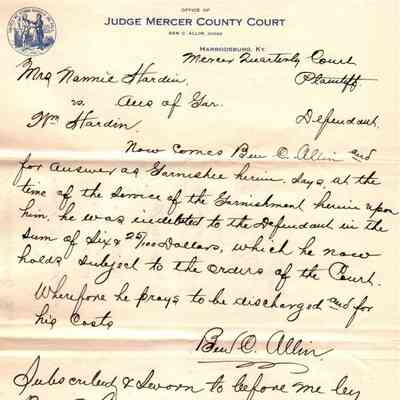 OFFICE OF
JUDGE MERCER COUNTY COURT
BEN C. ALLIN, JUDGE
HARRODSBURG, KY.
Mercer Quarterly Court
Mrs Nannie Hardin, Plaintiff
vs. Ans of Gar.
Wm Hardin. Defendant.
Now comes Ben C. Allin and
for answer as Garnishee herein, says, at the
time of the service of the Garnishment herein upon
him, he was indebted to the Defendant in the
sum of Six & 25/100 Dollars, which he now
holds subject to the orders of the Court.
Wherefore he prays to be discharged and for
his costs
Ben C. Allin
Subscribed & Sworn to before me by